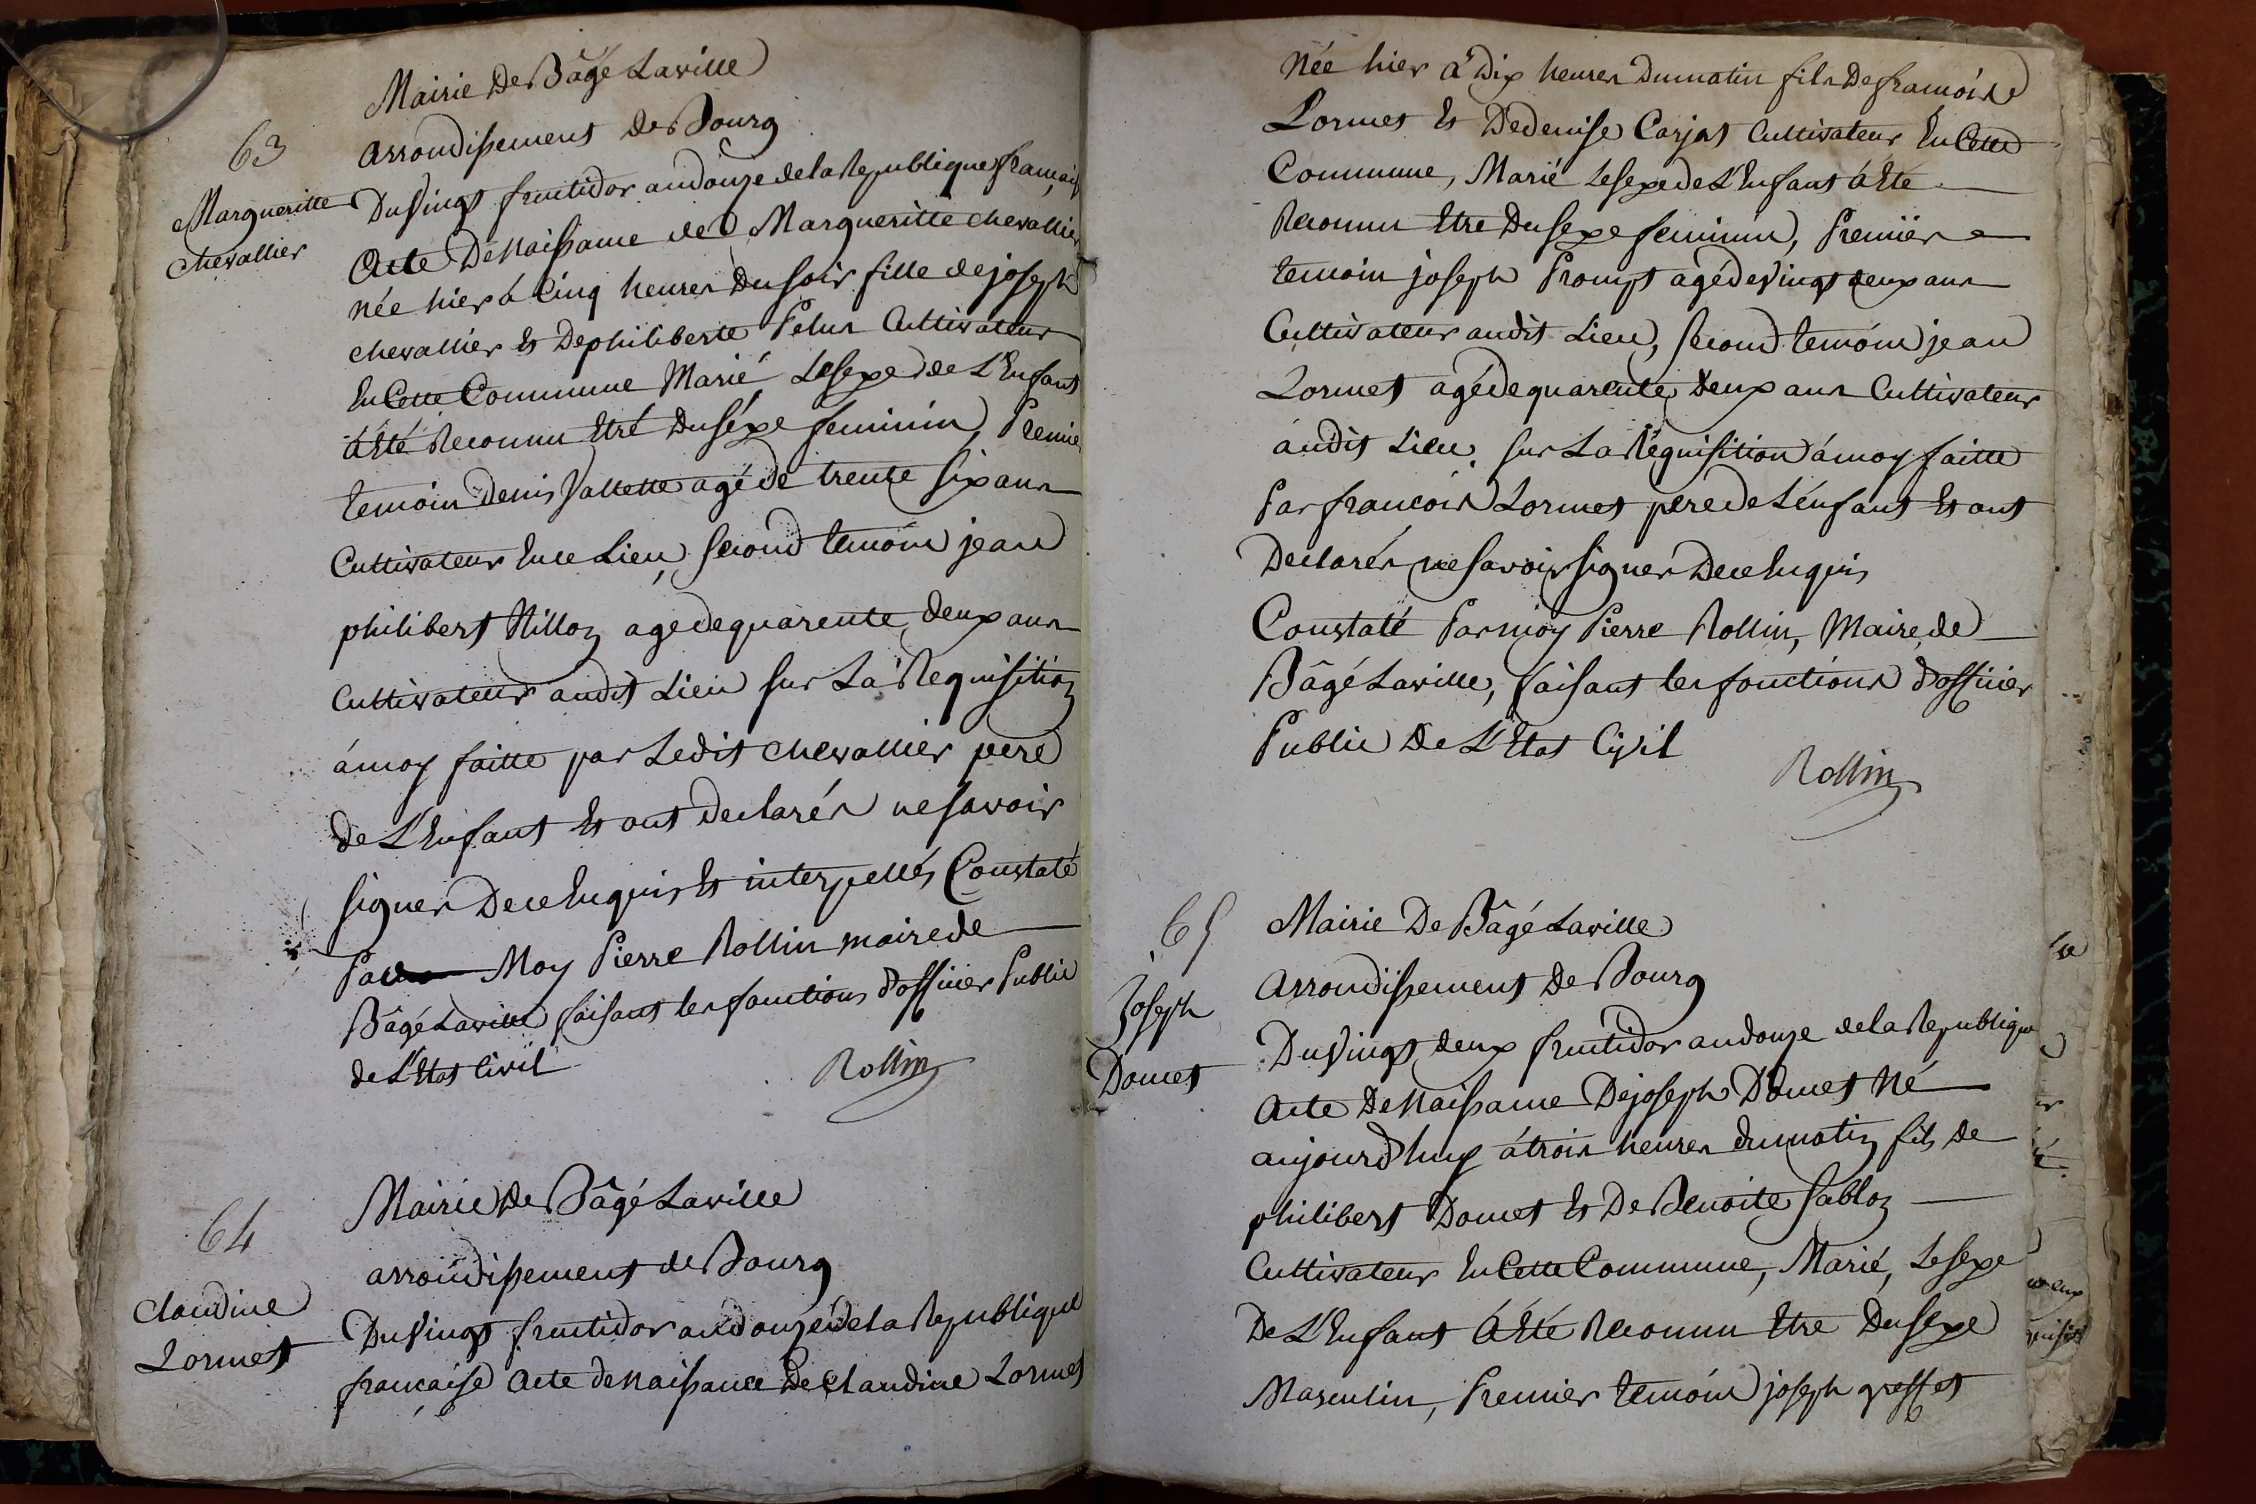 Mairie De Bâgé Laville
63
arrondissement de Bourg
Margueritte
chevallier
Du Vingt fructidor an douze de la Republique français
Acte De Naissance de Margueritte chevallier
née hier á Cinq heures Du soir fille de joseph
chevallier Et De philiberte Pelus Cultivateur
En Cette Commune Marié Le sexe de L'Enfant
á Eté Reconnu Etré Du séxe feminin, Premie
temoin denis Vallette agé de trente six ans
Cultivateur En ce Lieu, second temoin jean
philibert Nilloz agé de quarente deux ans
Cultivateur audit Lieu sur La Requisition
á moy faitte par Ledit chevallier pere
de L'Enfant Et ont declarés ne savoir
signer De ce Enquis Et interpellés Constaté
Par Moy Pierre Rollin maire de
Bâgé Laville faisant les fonctions d'officier Public
de L'Etat Civil
Rollin
Mairie De Bâgé Laville
64
arrondissement de Bourg
Claudine
Lormet
Du Vingt fructidor an douze de la Republique
francaise Acte de naissance De Claudine Lormet
Née hier á Dix heures Du matin fils De francoise
Lormet Et De denise Carjat Cultivateur En Cette
Commune, Marié Le sexe de L'Enfant á Eté
Reconnu Etre Du sexe feminin, Premier
temoin joseph Prompt agé de Vingt deux ans
Cultivateur audit Lieu, second temoin jean
Lormet agé de quarente deux ans Cultivateur
audit Lieu, sur La Réquisition á moy faitte
Par francois Lormet pere de L'enfant Et ont
Declarés ne savoir signer De ce Enquis
Constaté Par moy Pierre Rollin, Maire de
Bâgé Laville, faisant les fonctions d'officier
Public De L'Etat Civil
Rollin
65
Mairie De Bâgé Laville
Joseph
Domet
Arrondissement De Bourg
Du Vingt deux fructidor an douze de la Republique
Acte De Naissance De joseph Domet Né
aujourd'huy á trois heures du matin fils de
philibert Domet Et De Benoite Sabloz
Cultivateur En Cette Commune, Marié, Le sexe
De L'Enfant Á Eté Reconnu Etre Du sexe
Masculin, Premier temoin joseph greffet